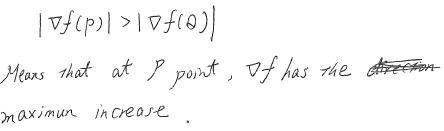 |∇f(P)| > |∇f(Q)|
Means that at P point, ∇f has the
maximun increase.